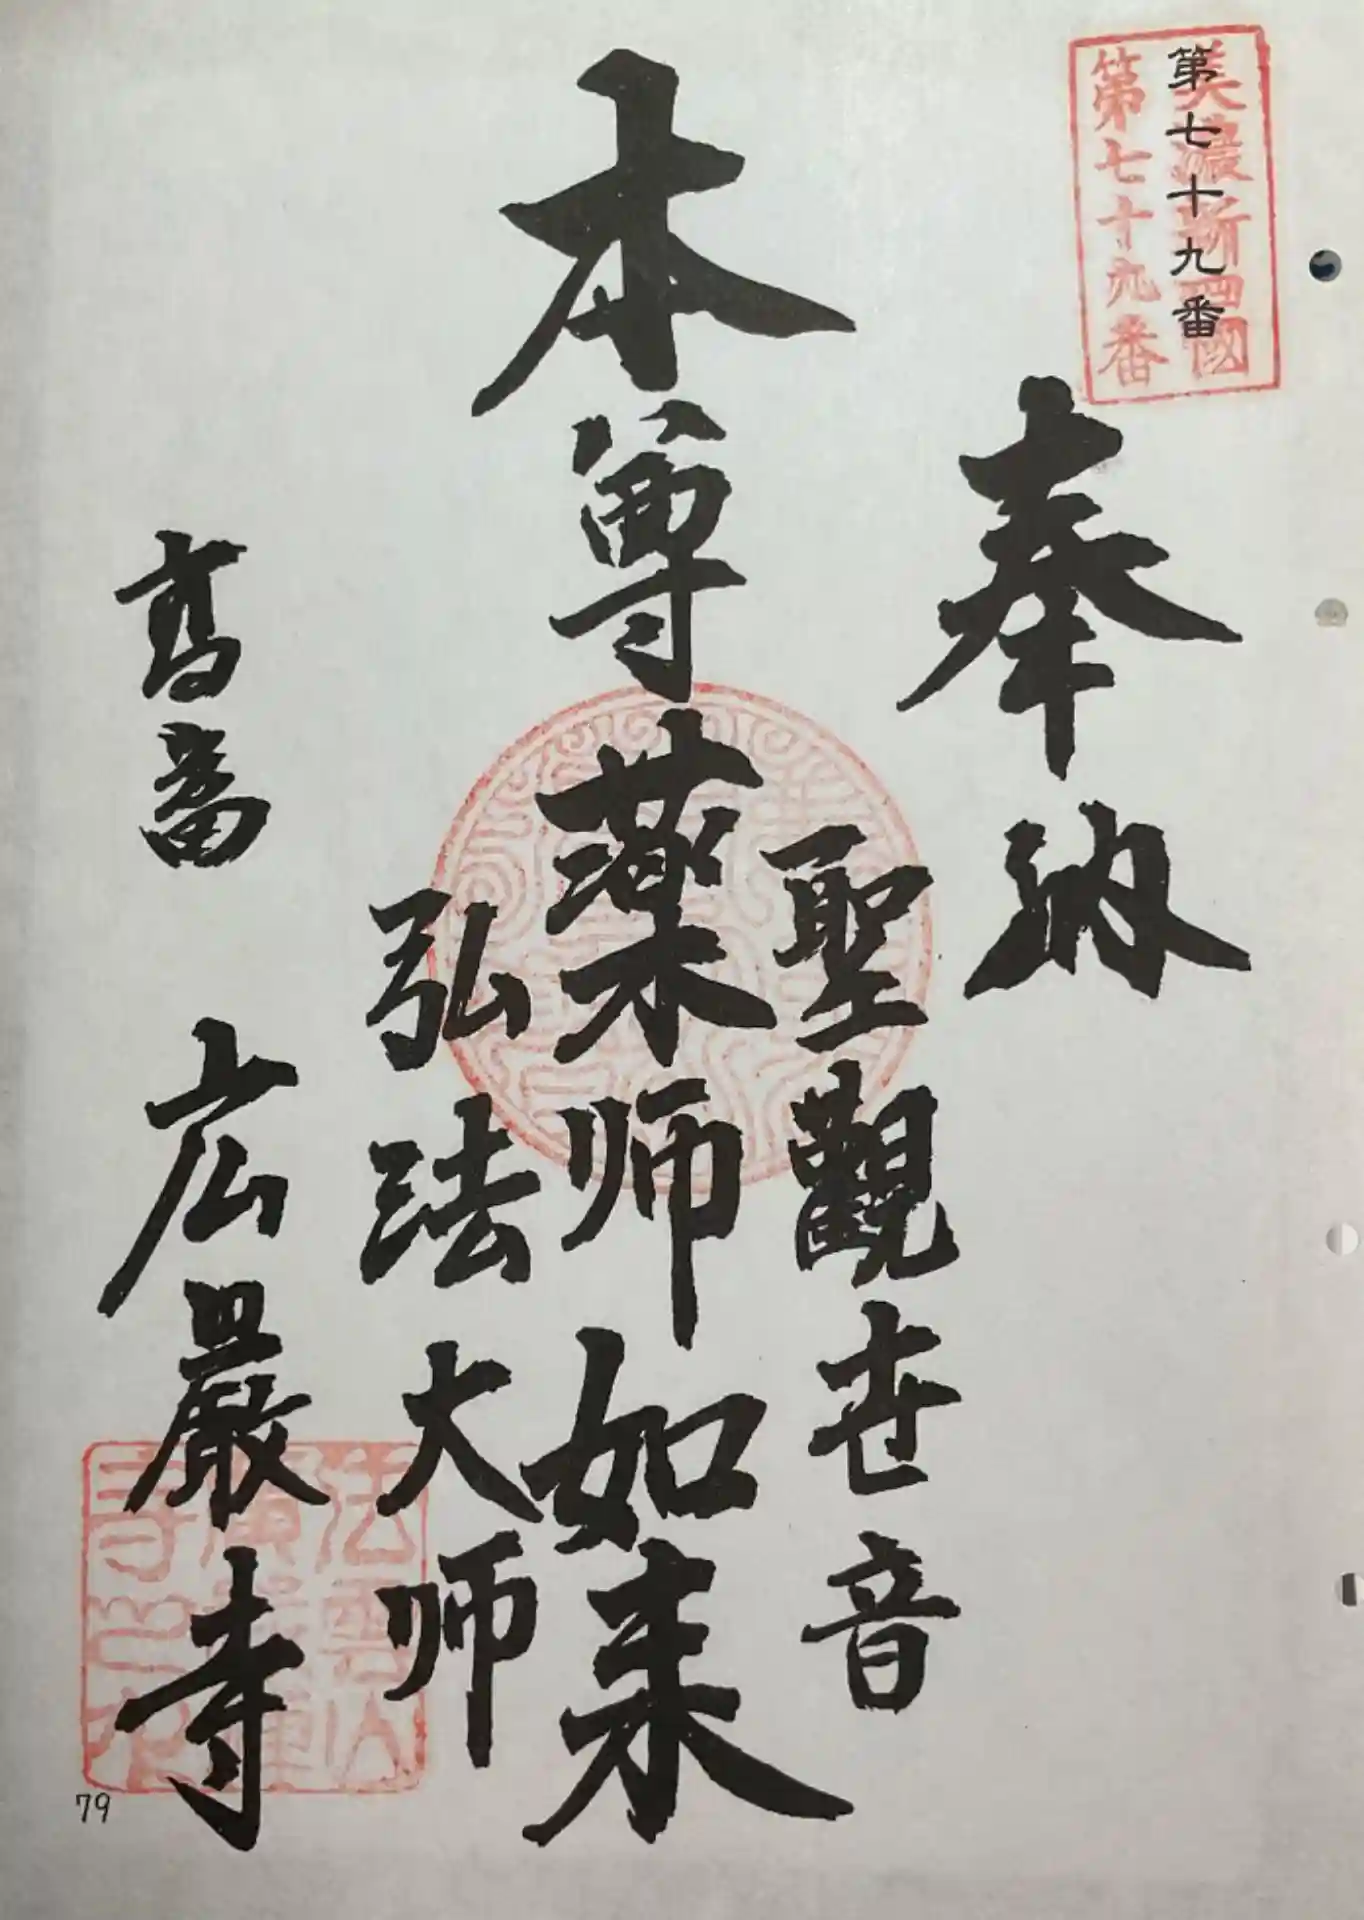 美濃新四國
第七十九番
第七十九番
奉納
聖觀世音
本尊薬师如来
弘法大师
高富 広巖寺
79